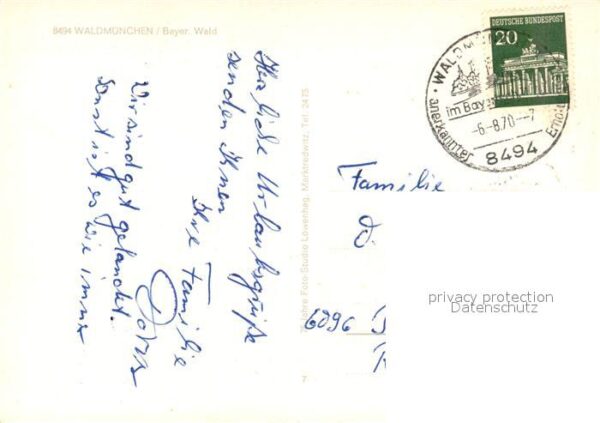 8494 WALDMÜNCHEN / Bayer. Wald
Herzliche Urlaubsgrüße
senden Ihnen
Ihre Familie
Wir sind gut gelandet.
Sonst ist es wie immer
Jahre Foto-Studio Löwenhag, Marktredwitz, Tel. 2475
7
DEUTSCHE BUNDESPOST
20
WALDM
im Bay
-6.-8.70.--7
8494
anerkannter Erhol
Familie
6096
privacy protection
Datenschutz